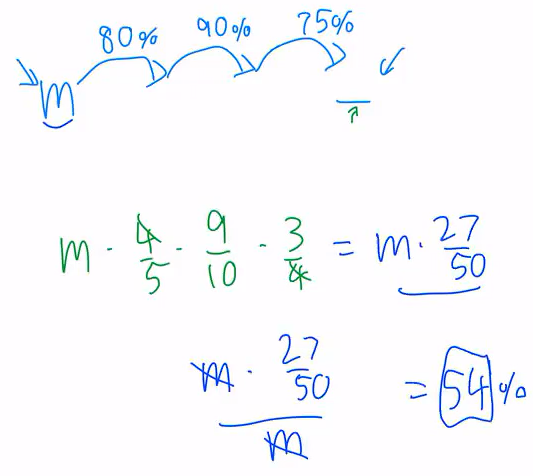 80% 90% 75%
m
m · 4/5 · 9/10 · 3/4 = m · 27/50
m · 27/50 / m = 54%